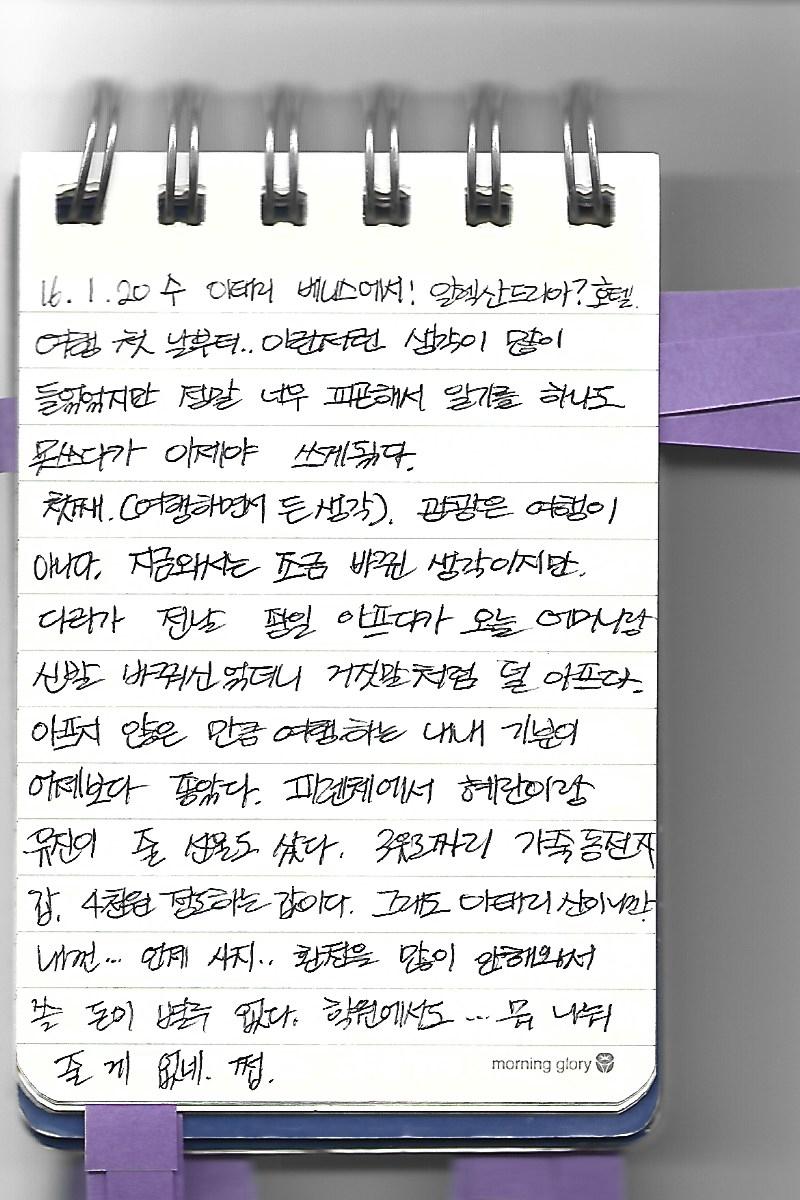 16. 1. 20 수 이태리 베니스에서! 알렉산드리아? 호텔.
여행 첫 날부터.. 이런저런 생각이 많이
들었었지만 정말 너무 피곤해서 일기를 하나도
못쓰다가 이제야 쓰게됬다.
첫째. (여행하면서 든 생각). 관광은 여행이
아니다. 지금와서는 조금 바뀐 생각이지만.
다리가 전날 종일 아프다가 오늘 어머니랑
신발 바꿔신었더니 거짓말처럼 덜 아프다.
아프지 않은 만큼 여행하는 내내 기분이
어제보다 좋았다. 피렌체에서 혜란이랑
유진이 줄 선물도 샀다. 3유로짜리 가죽동전지
갑. 4천원 정도하는 값이다. 그래도 이태리산이니깐
내껀... 언제 사지.. 환전을 많이 안해와서
쓸 돈이 별루 없다. 학원에서도 ... 뭐 나눠
줄 게 없네. 쩝.
morning glory